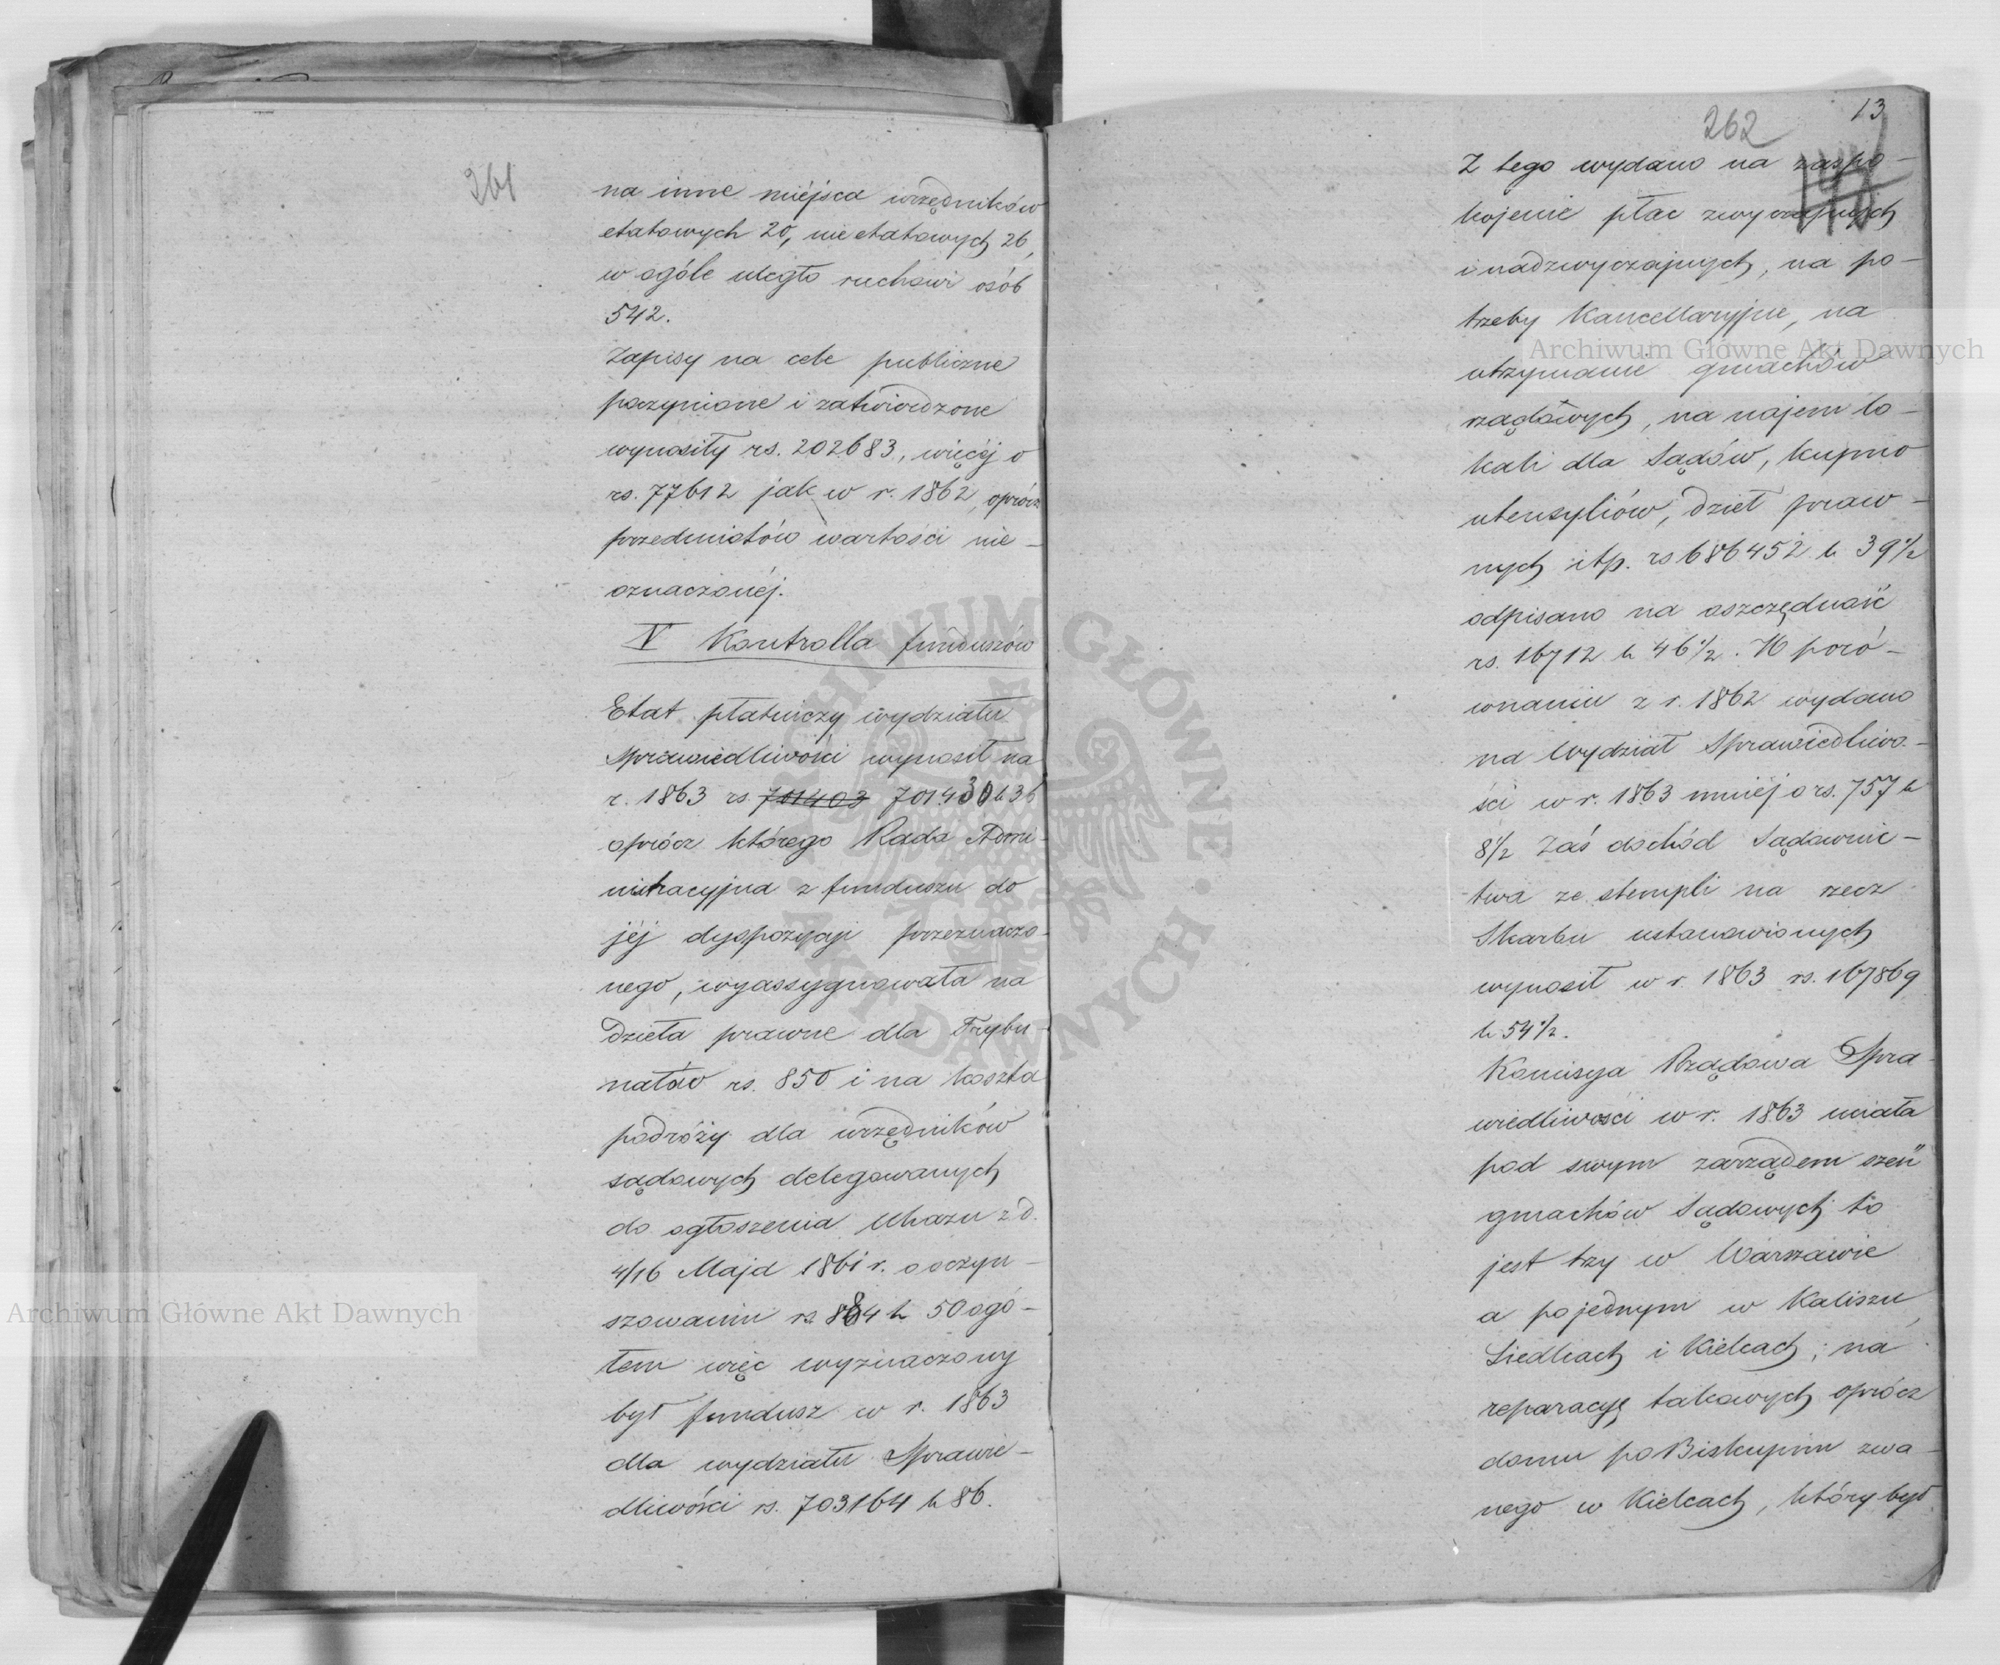 261
na inne miéjsca urzędników
etatowych 20, nie etatowych 26,
w ogóle uległo ruchowi osób
542.
Zapisy na cele publiczne
poczynione i zatwierdzone
wynosiły rs. 202683, więcéj o
rs. 77612 jak w r. 1862, oprócz
przedmiotów wartości nie-
oznaczonéj.
V Kontrolla funduszów
Etat płatniczy wydziału
Sprawiedliwości wynosił na
r. 1863 rs 701403 701430 k 36
oprócz którego Rada Admi-
nistracyjna z funduszu do
jéj dyspozycyi przeznaczo-
nego, wyassygnowała na
dzieła prawne dla Trybu-
nałów rs. 850 i na koszta
podróży dla urzędników
sądowych delegowanych
do ogłoszenia Ukazu z d.
4/16 Maja 1861 r. o oczyn-
szowaniu rs. 884 k 50 ogó-
łem więc wyznaczony
był fundusz w r. 1863
dla wydziału Sprawie-
dliwości rs. 703164 k 86.
262
13
Z tego wydano na zaspo-
kojenie płac zwyczajnych
i nadzwyczajnych, na po-
trzeby Kancellaryjne, na
utrzymanie gmachów
rządowych, na najem lo-
kali dla Sądów, kupno
utensyliów, dzieł praw-
nych itp. rs 686452 k 39½
odpisano na oszczędność
rs. 16712 k 46½. W poró-
wnaniu z r. 1862 wydano
na Wydział Sprawiedliwo-
ści w r. 1863 mniéj o rs. 757 k
8½ Zaś dochód Sądownic-
twa ze stempli na rzecz
Skarbu ustanowionych
wynosił w r. 1863 rs. 167869
k 54½.
Komisya Rządowa Spra-
wiedliwości w r. 1863 miała
pod swym zarządem sześć
gmachów Sądowych to
jest trzy w Warszawie
a po jednym w Kaliszu,
Siedlcach i Kielcach; na
reparacyę takowych oprócz
domu po Biskupim zwa-
nego w Kielcach, który był
Archiwum Główne Akt Dawnych
Archiwum Główne Akt Dawnych
ARCHIWUM GŁÓWNE · AKT DAWNYCH ·